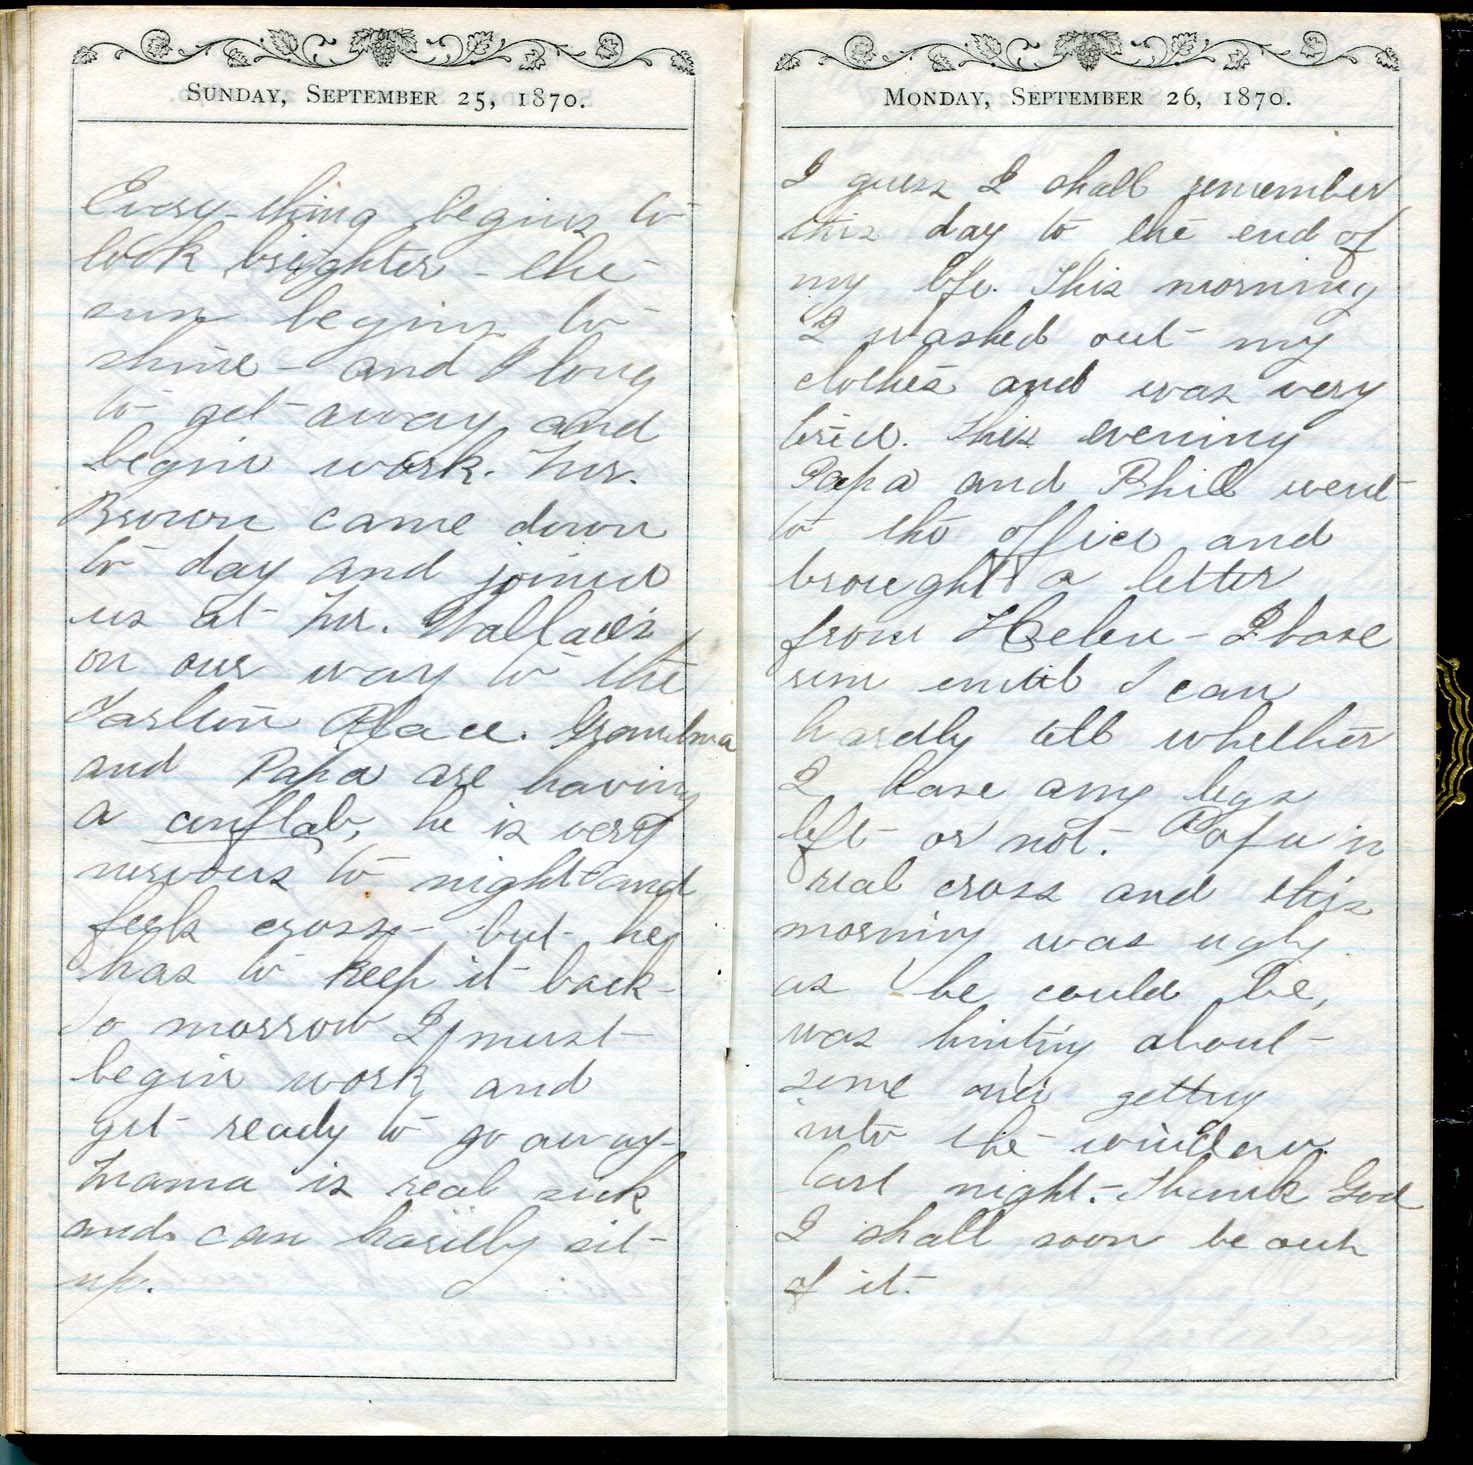 Sunday, September 25, 1870.
Every-thing begins to
look brighter - the
sun begins to
shine - and I long
to get away and
begin work. Mr.
Brown came down
to day and joined
us at Mr. Wallace's
on our way to the
Tarlton Place. Grandma
and Papa are having
a conflab, he is very
nervous to night and
feels cross - but he
has to keep it back -
To morrow I must
begin work and
get ready to go away -
Mama is real sick
and can hardly sit
up.
Monday, September 26, 1870.
I guess I shall remember
this day to the end of
my life. This morning
I washed out my
clothes and was very
tired. This evening
Papa and Phill went
to the office and
brought a letter
from Helen - I have
run until I can
hardly tell whether
I have any legs
left or not. - Papa is
real cross and this
morning was ugly
as he could be,
was hinting about
some one getting
into the window
last night. - Thank God
I shall soon be out
of it. -